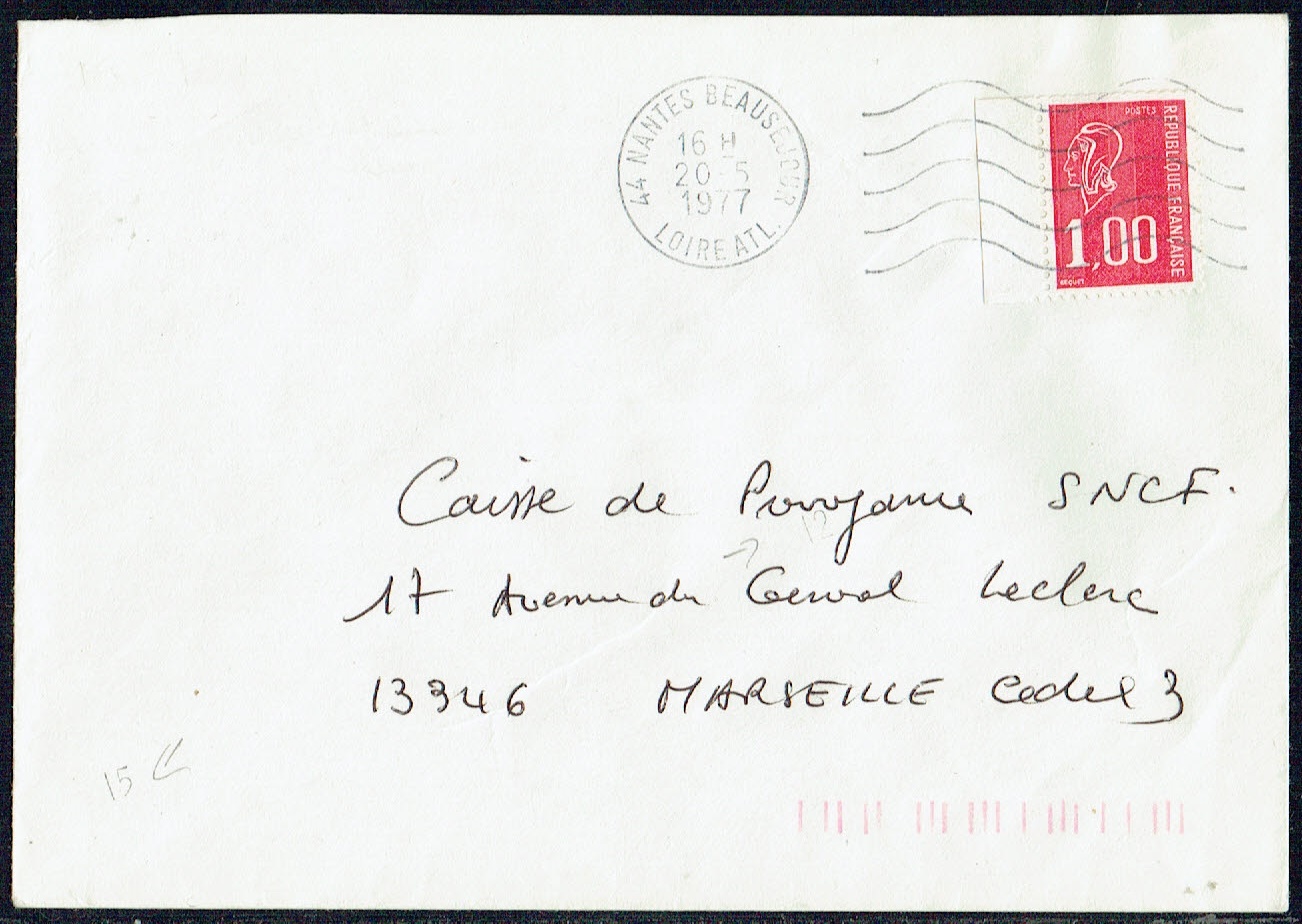 44 NANTES BEAUSEJOUR
16 H
20-5
1977
LOIRE ATL.
POSTES
REPUBLIQUE FRANÇAISE
1,00
BEQUET
Caisse de Prévoyance SNCF.
17 Avenue du General Leclerc
13346 MARSEILLE Cedex 3
15 €